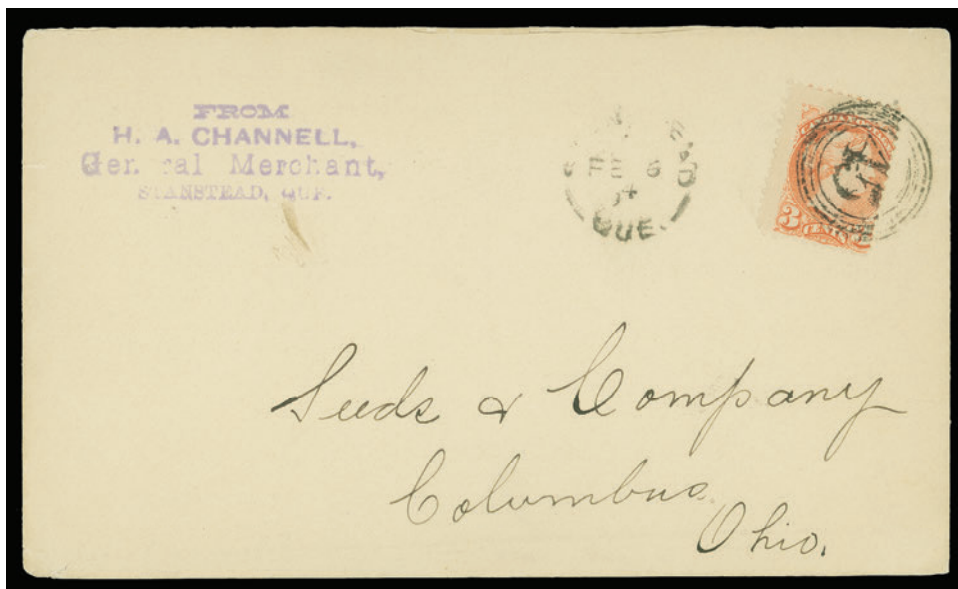 FROM
H. A. CHANNELL,
General Merchant,
STANSTEAD, QUE.
FE 6
QUE.
3 CENTS
Seeds & Company
Columbus
Ohio.